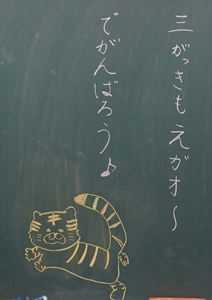 三がっきもえがオ〜
でがんばろう♪